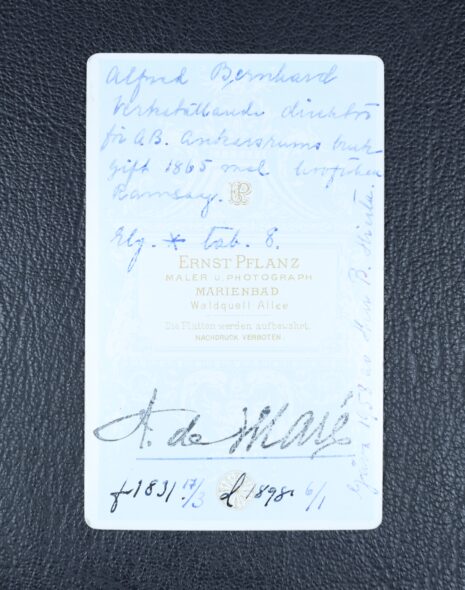 Alfred Bernhard
Verkställande direktör
för A.B. Ankarsrums bruk
gift 1865 med
Ramsay.
Elg. * tab. 8.
ERNST PFLANZ
MALER U. PHOTOGRAPH
MARIENBAD
Waldquell Allee
Die Platten werden aufbewahrt.
NACHDRUCK VERBOTEN.
A. de Maré
f 1831 17/3 d 1898 6/1
B.